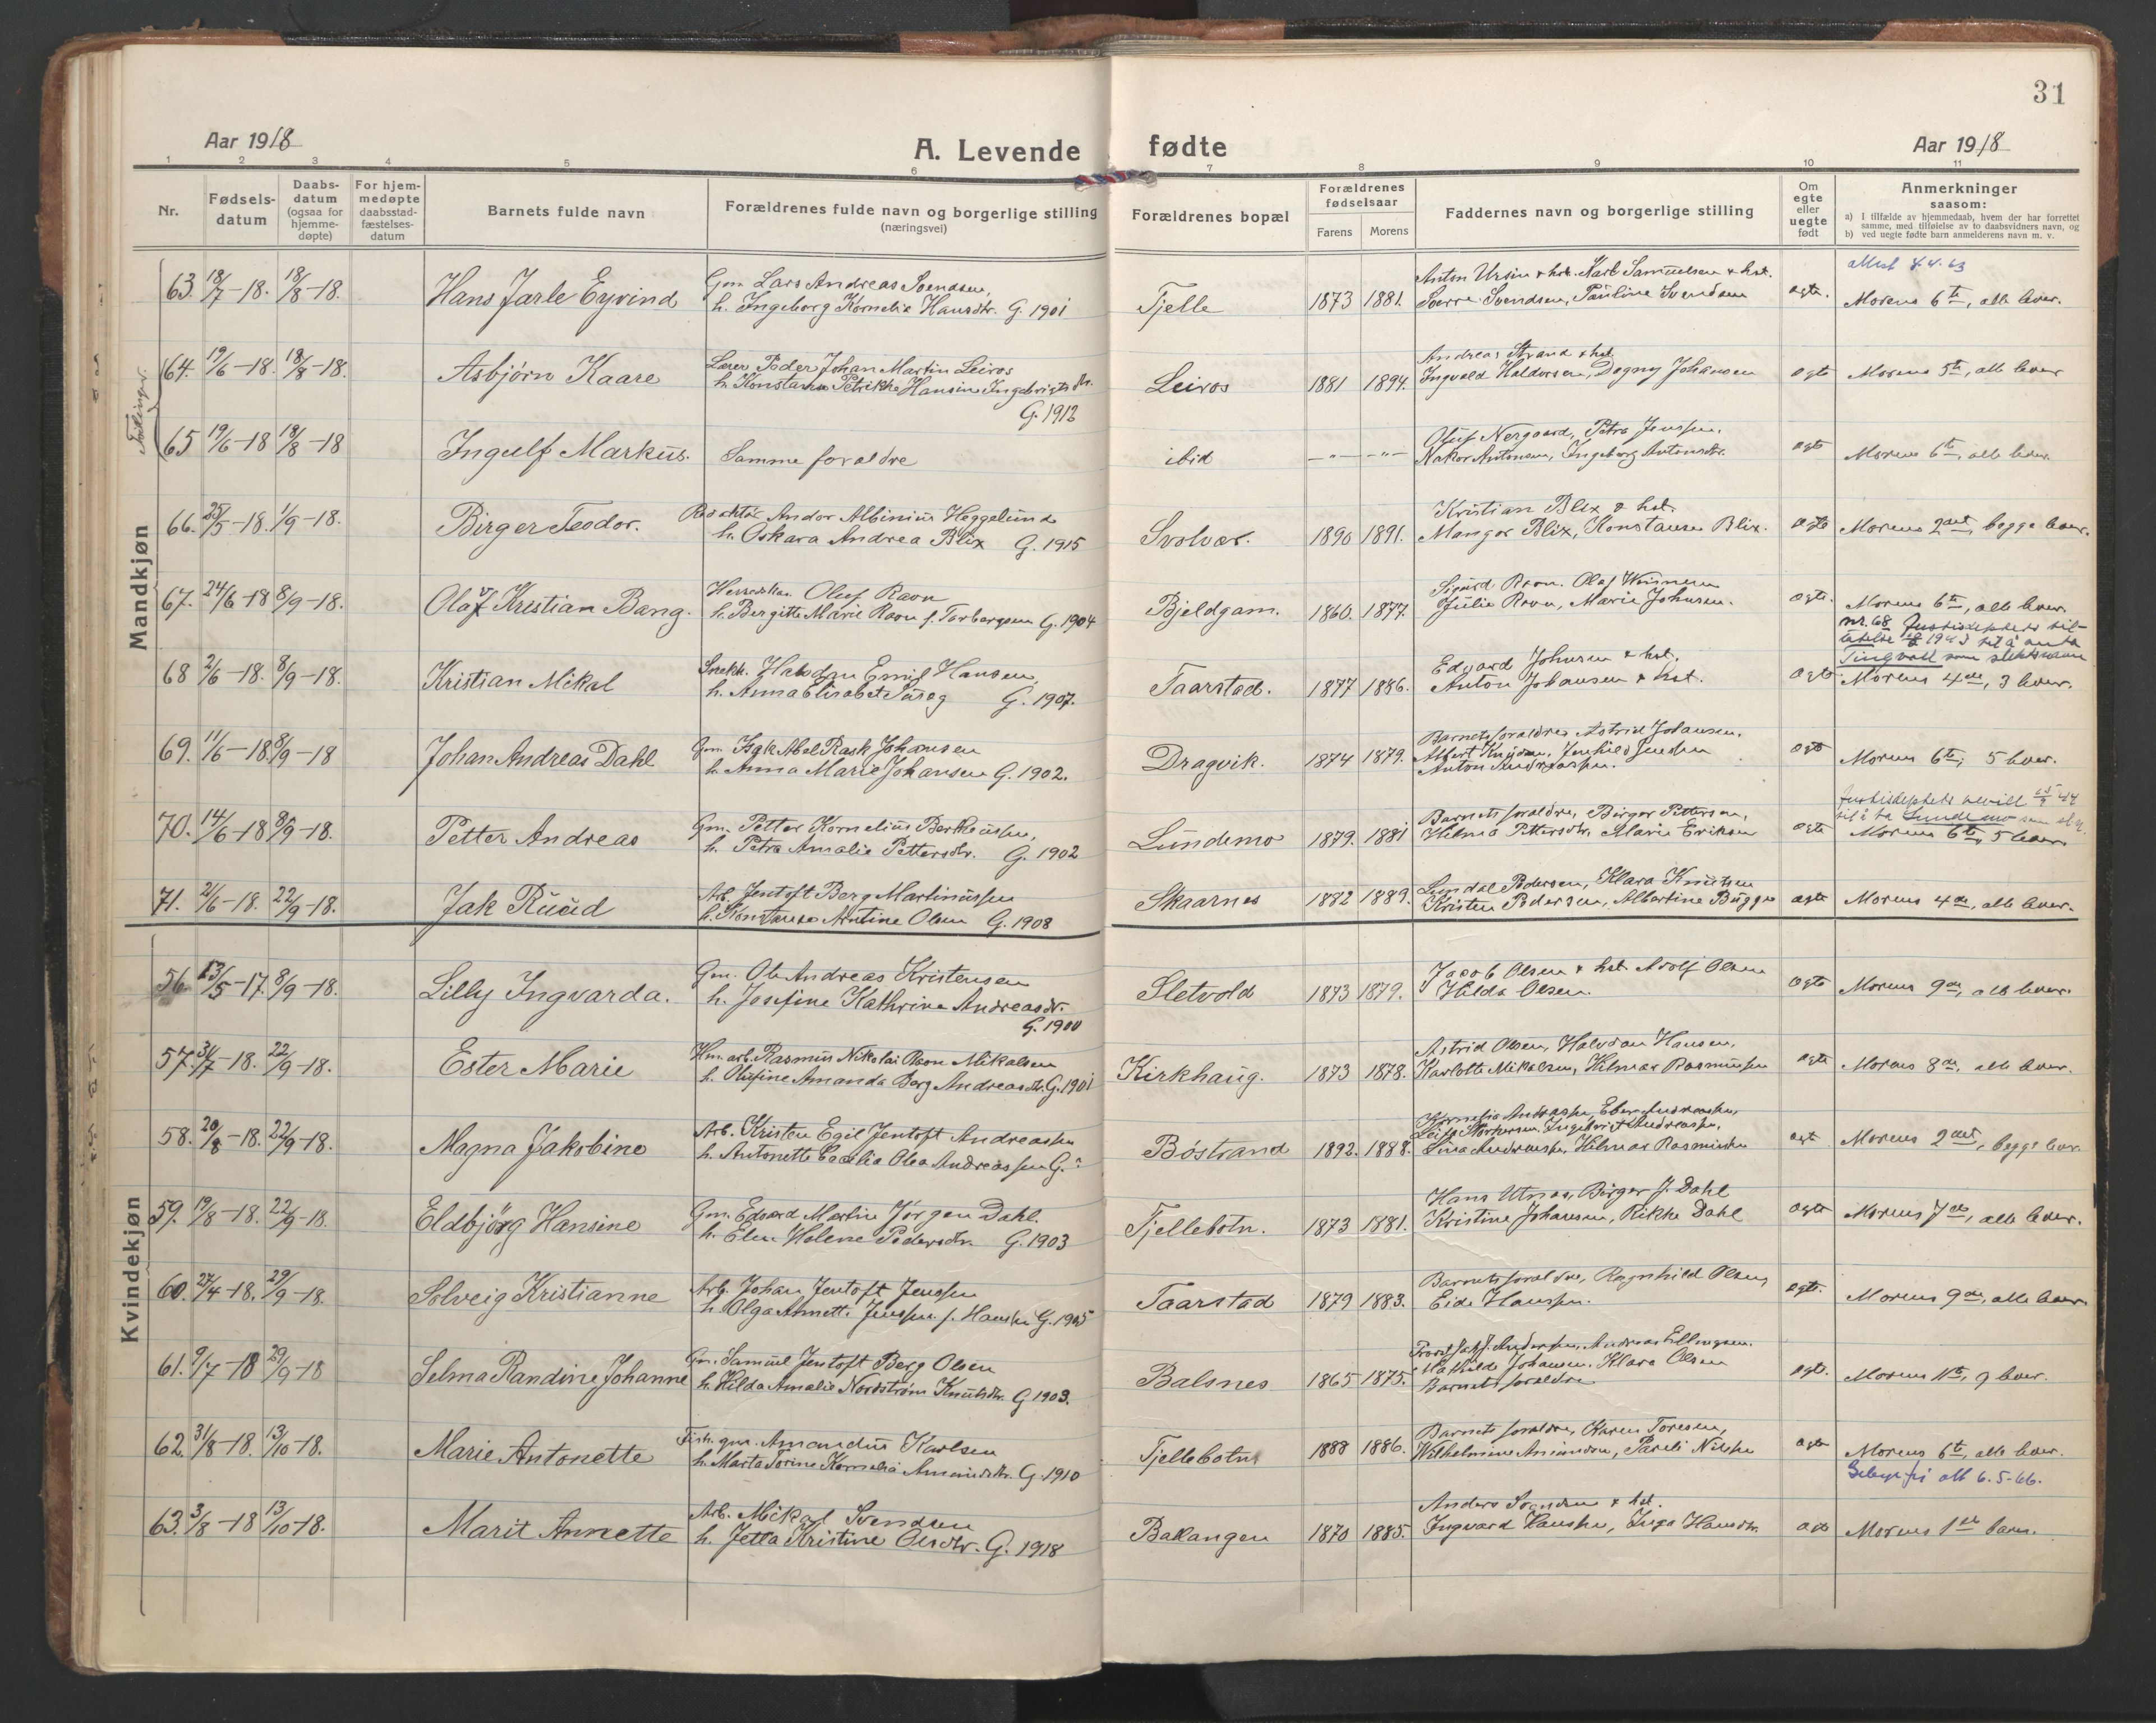 31
Aar 1918
A. Levende fødte
Aar 1918
1 2 3 4 5 6 7 8 9 10 11
Nr.
Fødsels-
datum
Daabs-
datum
(ogsaa for
hjemme-
døpte)
For hjem-
medøpte
daabsstad-
fæstelses-
datum
Barnets fulde navn
Forældrenes fulde navn og borgerlige stilling
(næringsvei)
Forældrenes bopæl
Forældrenes
fødselsaar
Farens Morens
Faddernes navn og borgerlige stilling
Om
egte
eller
uegte
født
Anmerkninger
saasom:
a) I tilfælde av hjemmedaab, hvem der har forrettet
samme, med tilføielse av to daabsvidners navn, og
b) ved uegte fødte barn anmelderens navn m. v.
Mandkjøn
63. 18/7-18. 18/8-18. Hans Jarle Eyvind
Gm. Lars Andreas Svendsen,
h. Ingeborg Kornelia Hansdtr. G. 1901
Tjelle 1873 1881.
Anton Ursin & hst. Karl Samuelsen & hst.
Sverre Svendsen, Pauline Svendsen
egte.
attest 4.4.63
Morens 6te, alle lever.
Tvillinger.
64. 19/6-18. 18/8-18. Asbjørn Kaare
Lærer Peder Johan Martin Leiros
h. Konstanse Petrikke Hansine Ingebrigtsdtr.
G. 1912
Leiros 1881 1894.
Andreas Strand & hst.
Ingvald Haldorsen, Dagny Johansen
egte Morens 5te, alle lever
65 19/6-18 18/8-18 Ingulf Markus.
Samme forældre
ibid -"- -"-
Oluf Nergaard, Petra Jenssen.
Hakor Antonsen, Ingeborg Antonsdtr.
egte Morens 6te, alle lever.
66. 25/5-18. 1/9-18. Birger Teodor.
Redaktør Andor Albinius Heggelund
h. Oskara Andrea Blix G. 1915
Svolvær. 1890 1891.
Kristian Blix & hst.
Mangor Blix, Konstanse Blix.
egte Morens 2det, begge lever.
67. 24/6-18 8/9-18. Olaf Kristian Bang.
Oluf Ravn
h. Bergitte Marie Ravn f. Torbergsen G. 1904
Bjeldgam. 1860. 1877.
Sigurd Ravn. Olaf
Julie Ravn, Marie Johnsen.
egte. Morens 6te, alle lever.
nr. 68 Justisdeptets til-
latelse 1943 til å anta
Tingvoll som slektsnavn
68 2/6-18. 8/9-18. Kristian Mikal
Snekk. Halvdan Emil Hansen,
h. Anna Elisabet G. 1907.
Taarstad. 1877 1886.
Edvard Johnsen & hst.
Anton Johansen & hst.
egte Morens 4de, 3 lever.
69. 11/6-18. 8/9-18 Johan Andreas Dahl
Gm. Isak Abel Rask Johansen
h. Anna Marie Johansen G. 1902.
Dragvik. 1874 1879.
Barnets forældre, Astrid Johansen.
Albert Knudsen, Jenssen
Anton Andreassen.
egte Morens 6te, 5 lever.
70. 14/6-18 8/9-18. Petter Andreas
Gm. Petter Kornelius Bertheussen,
h. Petra Amalie Pettersdtr. G. 1902
Lundemo 1879. 1881
Barnets forældre, Birger Pettersen,
Hilma Pettersdtr. Marie Eriksen
egte
Justisdeptets bevill 44
til å ta Lundemo som
Morens 6te, 5 lever.
71. 2/6-18. 22/9-18. Jak Ruud
Arb. Jentoft Berg Martinussen
h. Konstanse Arntine Olsen G. 1908
Skaarnes 1882 1889.
Lundal Pedersen, Klara Knutsen
Kristen Pedersen, Albertine Bugge
egte Morens 4de, alle lever.
Kvindekjøn
56. 13/5-17. 8/9-18. Lilly Ingvarda.
Gm. Ole Andreas Kristensen
h. Josefine Kathrine Andreasdtr.
G. 1900
Sletvold 1873 1879.
Jacob Olsen & hst. Adolf Olsen
Hilda Olsen.
egte Morens 9de, alle lever.
57. 31/7-18. 22/9-18. Ester Marie
Hm. arb. Rasmus Nikolai Mikalsen
h. Olufine Amanda Berg Andreasdtr. G. 1901
Kirkhaug. 1873 1878.
Astrid Olsen, Halvdan Hansen,
Karlotte Mikalsen, Hilmar Rasmussen
egte Morens 8de, alle lever.
58. 20/8-18. 22/9-18. Magna Jakobine
Arb. Kristen Egil Jentoft Andreassen
h. Antonette Cæcilia Olea Andreassen G.
Bøstrand 1892. 1888.
Andreassen, Andreassen,
Ingebrigt Andreassen,
Lina Andreassen, Hilmar Rasmussen
egt Morens 2det, begge lever
59. 19/8-18. 22/9-18. Eldbjörg Hansine
Gm. Edvard Martin Jørgen Dahl.
h. Elen Helene Pedersdtr. G. 1903
Tjellebotn. 1873 1881.
Hans Utnes, Birger J. Dahl
Kristine Johansen, Rikke Dahl
egte Morens 7de, alle lever.
60. 27/4-18. 29/9-18. Solveig Kristianne
Arb. Johan Jentoft Jenssen
h. Olga Annette Jenssen f. Hansen G. 1905
Taarstad 1879 1883.
Barnets forældre, Ragnhild Olsen,
Eide Hanssen.
egte. Morens 9de, alle lever.
61. 9/7-18 29/9-18 Selma Randine Johanne
Gm. Samuel Jentoft Berg Olsen
h. Hilda Amalie Nordstrøm Knutsdtr. G 1903.
Balsnes 1865 1875.
Andersen, Andreas Ellingsen.
Mathilde Johansen. Klara Olsen
Barnets forældre
egte. Morens 11te, 9 lever.
62. 31/8-18. 13/10-18. Marie Antonette
Fisk. gm. Amandus Karlsen
h. Marta Torine Kornelia Amundsdtr. G. 1910
Tjellebotn 1888 1886.
Barnets forældre, Karen Toresen,
Wilhelmine Amundsen, Pareli Nilsen
egte Morens 6te, alle lever.
att 6.5-66.
63. 3/8-18 13/10-18. Marit Annette
Arb. Mikael Svendsen
h. Jetta Kristine Olsdtr. G. 1918
Bakangen 1870 1885.
Anders Svendsen & hst.
Ingvard Hanssen, Inga Hansdtr.
egte Morens 1ste barn.